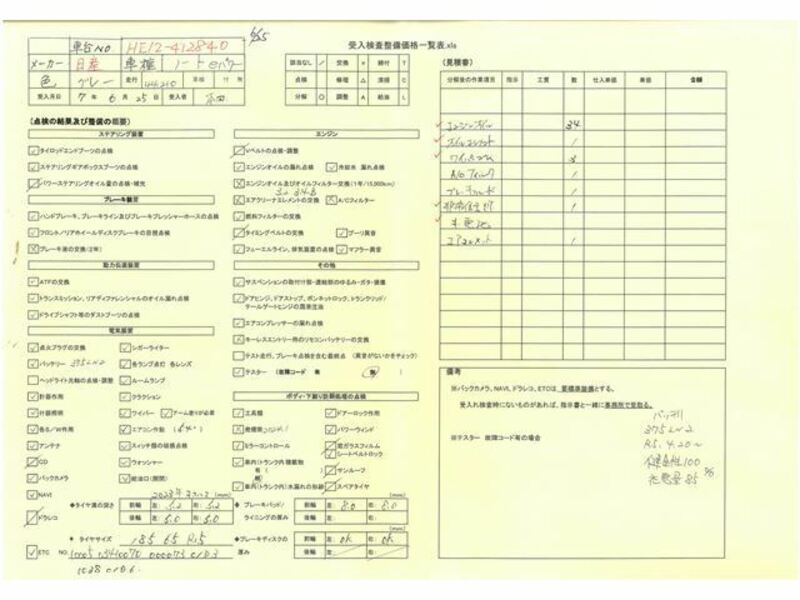 6/25
車台NO. HE12-412840
メーカー 日産 車種 ノートeパワー
色 グレー 走行 車検 付 無
受入月日 7年 6月 25日 受入者
受入検査整備価格一覧表.xls
該当なし ／ 交換 × 締付 T
点検 修理 △ 清掃 C
分解 ○ 調整 A 給油 L
(点検の結果及び整備の概要)
ステアリング装置
タイロッドエンドブーツの点検
ステアリングギアボックスブーツの点検
パワーステアリングオイル量の点検・補充
ブレーキ装置
ハンドブレーキ、ブレーキライン及びブレーキプレッシャーホースの点検
フロント/リアホイールディスクブレーキの目視点検
ブレーキ液の交換(2年)
動力伝達装置
ATFの交換
トランスミッション、リアディファレンシャルのオイル漏れ点検
ドライブシャフト等のダストブーツの点検
電気装置
点火プラグの交換 シガーライター
バッテリー 375LN2 各ランプ点灯 各レンズ
ヘッドライト光軸の点検・調整 ルームランプ
計器作用 クラクション
計器照明 ワイパー アーム塗り必要
各ミ/W作用 エアコン作動
アンテナ スイッチ類の接触点検
CD ウォッシャー
バックカメラ 給油口(開閉)
NAVI
ドラレコ
ETC NO.
エンジン
Vベルトの点検・調整
エンジンオイルの漏れ点検 冷却水 漏れ点検
エンジンオイル及びオイルフィルター交換(1年/15,000km)
エアクリーナエレメントの交換 A/Cフィルター
燃料フィルターの交換
タイミングベルトの交換 プーリ異音
フューエルライン、排気装置の点検 マフラー異音
その他
サスペンションの取付け部・連結部のゆるみ・ガタ・損傷
ドアヒンジ、ドアストップ、ボンネットロック、トランクリッド/
テールゲートヒンジの潤滑注油
エアコンプレッサーの漏れ点検
キーレスエントリー用のリモコンバッテリーの交換
テスト走行、ブレーキ点検を含む最終点 (異音がないかをチェック)
テスター (故障コード 有 無)
ボディ・下廻り防錆処理の点検
工具類 ドアーロック作用
発煙筒 パワーウィンド
ミラーコントロール 窓ガラスフィルム
シートベルトロック
車内(トランク内)積載物 サンルーフ
有( )
無
車内(トランク内)水漏れの形跡 スペアタイヤ
◆タイヤ溝の深さ (mm)
前輪 左: 5.2 右: 5.2
後輪 左: 5.0 右: 5.0
＊タイヤサイズ 185 65 R15
◆ブレーキパッド/ライニングの厚み (mm)
前輪 左: 8.0 右: 8.0
後輪 左: 右:
◆ブレーキディスクの厚み (mm)
前輪 左: ok 右: ok
後輪 左: 右:
(見積書)
分解後の作業項目 指示 工賃 数 仕入単価 単価 金額
エンジンオイル 3.4
オイルエレメント 1
ワイパーゴム 3
1
ブレーキフルード 1
1
エアエレメント 1
備考
※バックカメラ、NAVI、ドラレコ、ETCは、要標準装備とする。
受入れ検査時にないものがあれば、指示書と一緒に事務所で受取る。
※テスター 故障コード有の場合
バッテリ
375LN2
R5.4.20~
健全性100
充電量85%